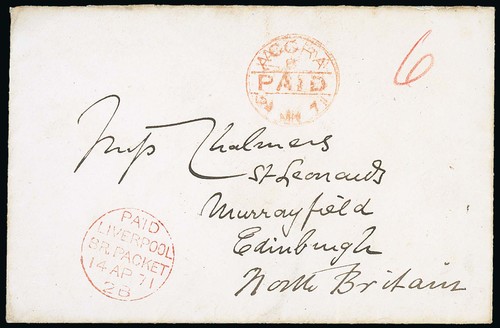 ACCRA
PAID
6
Miss Chalmers
St Leonards
Murrayfield
Edinburgh
North Britain
PAID
LIVERPOOL
BR. PACKET
14 AP 71
2B